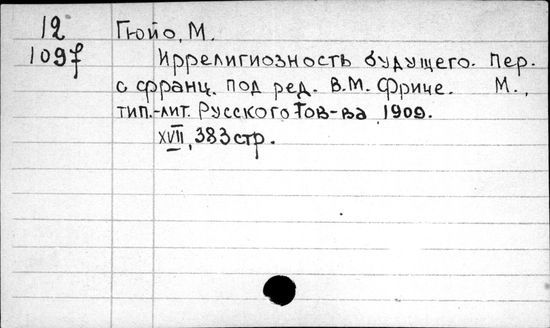 12 Гюйо, М.
1097 Иррелигиозность будущего. Пер.
с франц. под ред. В.М. Фриче. М.,
тип.-лит. Русского Тов-ва, 1909.
XVII, 383 стр.